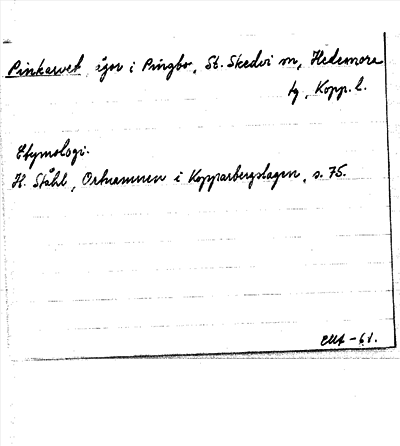 Pinkarvet, ägor i Pingbo, St. Skedvi sn, Hedemora
tg, Kopp. l.
Etymologi.
H. Ståhl, Ortnamnen i Kopparbergslagen, s. 75.
-61.